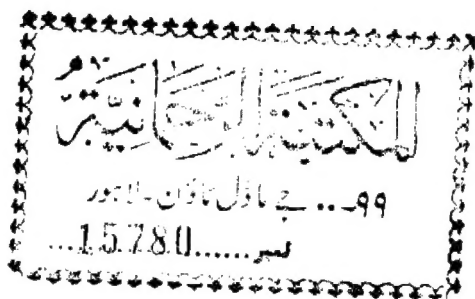 المكتبة الرحمانية
۹۹... جے ماڈل ٹاؤن ۔ لاہور
نمبر......15780...